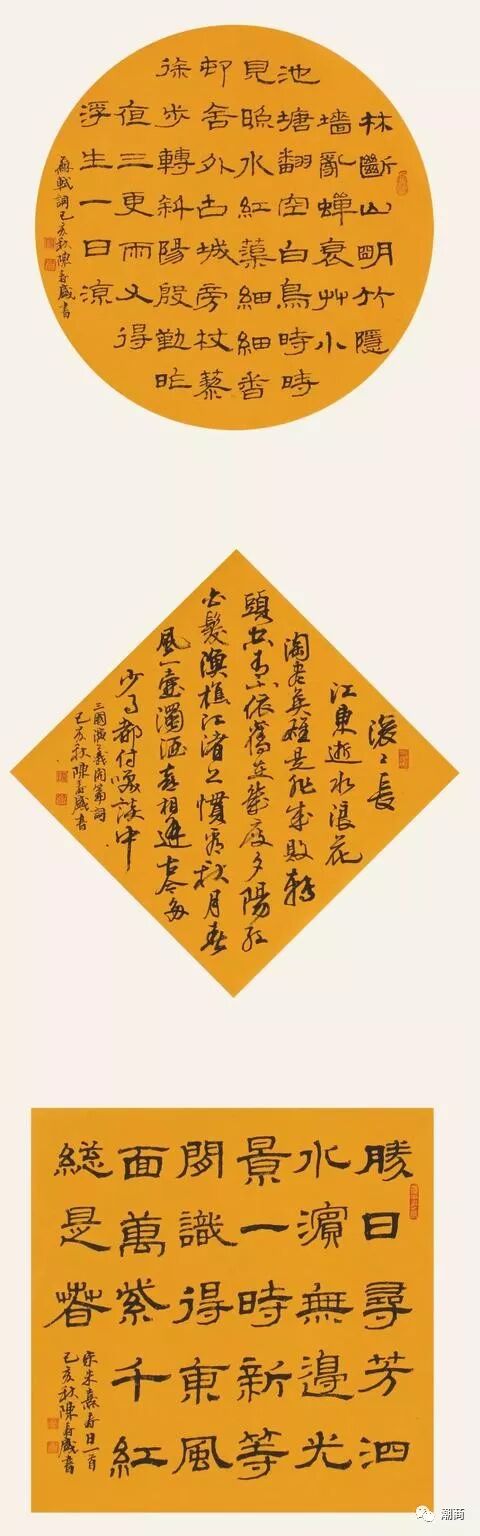 林斷山明竹隱
墻亂蟬衰艸小
池塘翻空白鳥時時
見照水紅蕖細細香
邨舍外古城旁杖藜
徐步轉斜陽殷勤昨
夜三更雨又得
浮生一日涼
蘇軾詞己亥秋陳春盛書
滾〻長
江東逝水浪花
淘盡英雄是非成敗轉
頭空青山依舊在幾度夕陽紅
白髮漁樵江渚上慣看秋月春
風一壺濁酒喜相逢古今多
少事都付笑談中
三國演義開篇詞
己亥秋陳春盛書
勝日尋芳泗
水濱無邊光
景一時新等
閒識得東風
面萬紫千紅
總是春
宋朱熹春日一首
己亥秋陳春盛書
潮商